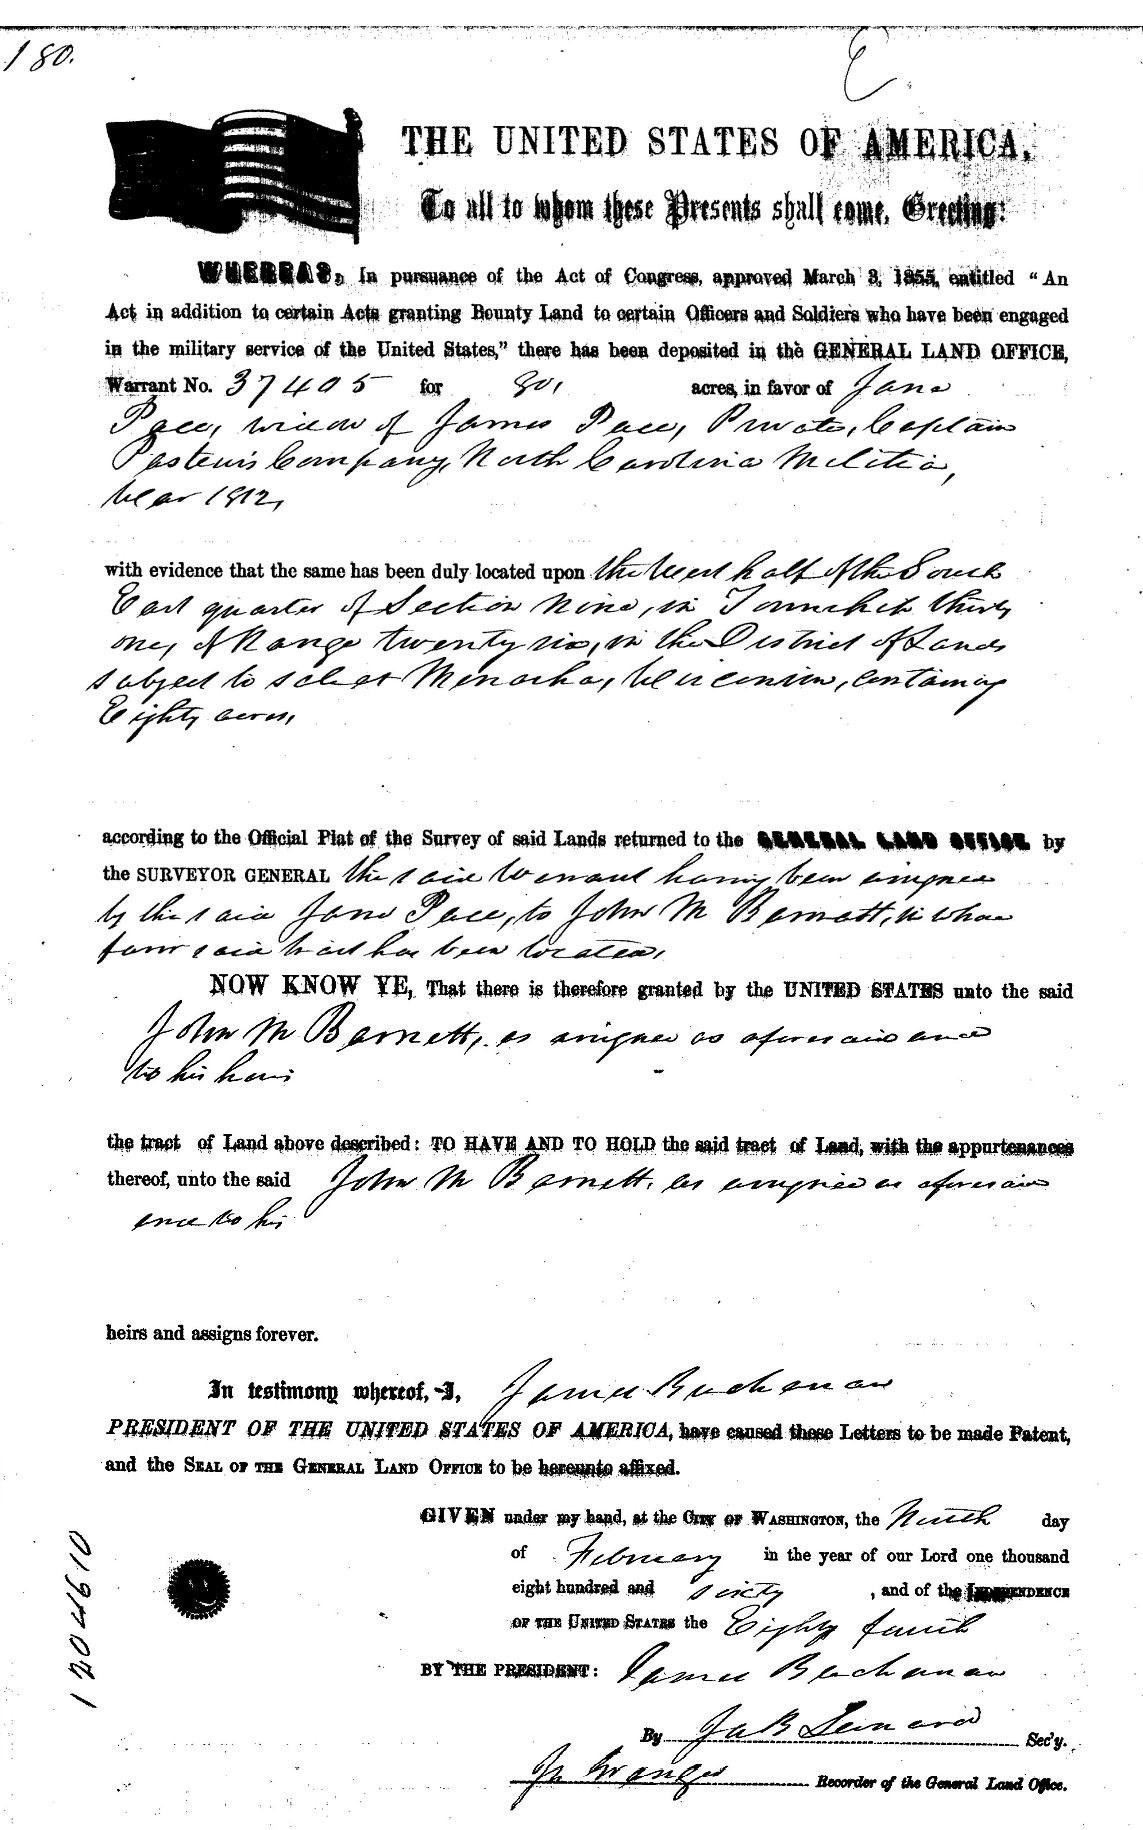 180.
THE UNITED STATES OF AMERICA,
To all to whom these Presents shall come, Greeting:
WHEREAS, In pursuance of the Act of Congress, approved March 3, 1855, entitled "An
Act in addition to certain Acts granting Bounty Land to certain Officers and Soldiers who have been engaged
in the military service of the United States," there has been deposited in the GENERAL LAND OFFICE,
Warrant No. 37405 for 80, acres, in favor of Jane
Pace, widow of James Pace, Private, Captain
Company, North Carolina Militia,
War 1812,
with evidence that the same has been duly located upon the West half of the South
East quarter of Section Nine, in Township thirty
one, of Range twenty six, in the District of Lands
subject to sale at Menasha, Wisconsin, containing
Eighty acres,
according to the Official Plat of the Survey of said Lands returned to the GENERAL LAND OFFICE by
the SURVEYOR GENERAL the said Warrant having been assigned
by the said Jane Pace, to John M Barnett, in whose
favor said tract has been located,
NOW KNOW YE, That there is therefore granted by the UNITED STATES unto the said
John M Barnett, as assignee as aforesaid and
to his heirs
the tract of Land above described: TO HAVE AND TO HOLD the said tract of Land, with the appurtenances
thereof, unto the said John M Barnett, as assignee as aforesaid
and to his
heirs and assigns forever.
In testimony whereof, I, James Buchanan
PRESIDENT OF THE UNITED STATES OF AMERICA, have caused these Letters to be made Patent,
and the SEAL OF THE GENERAL LAND OFFICE to be hereunto affixed.
GIVEN under my hand, at the CITY OF WASHINGTON, the Ninth day
of February in the year of our Lord one thousand
eight hundred and sixty, and of the INDEPENDENCE
OF THE UNITED STATES the Eighty fourth
BY THE PRESIDENT: James Buchanan
By J B Leonard Sec'y.
Granger Recorder of the General Land Office.
1204610